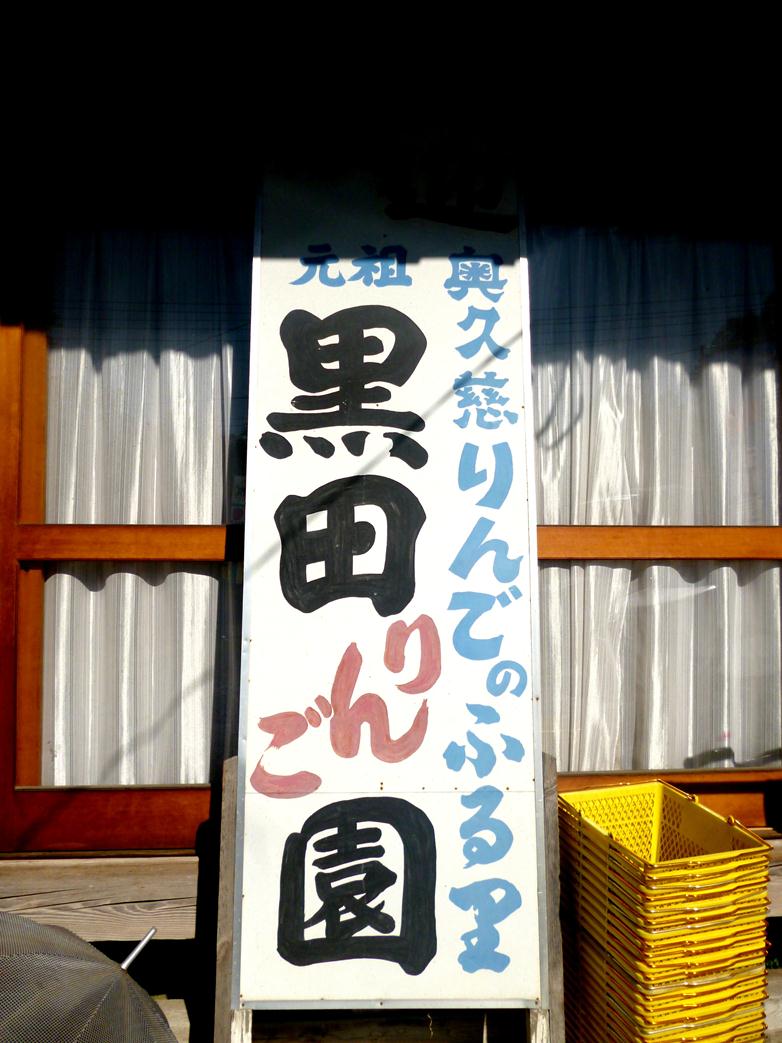 奥久慈りんごのふる里
元祖
黒田りんご園